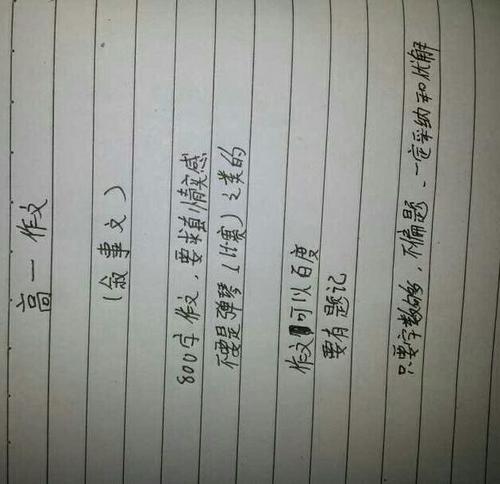 高一 作文
(叙事文)
800字作文，要求真情实感
不要是弹琴(比赛)之类的
作文可以百度
要有题记
只要字数够，不偏题，一定采纳和优解